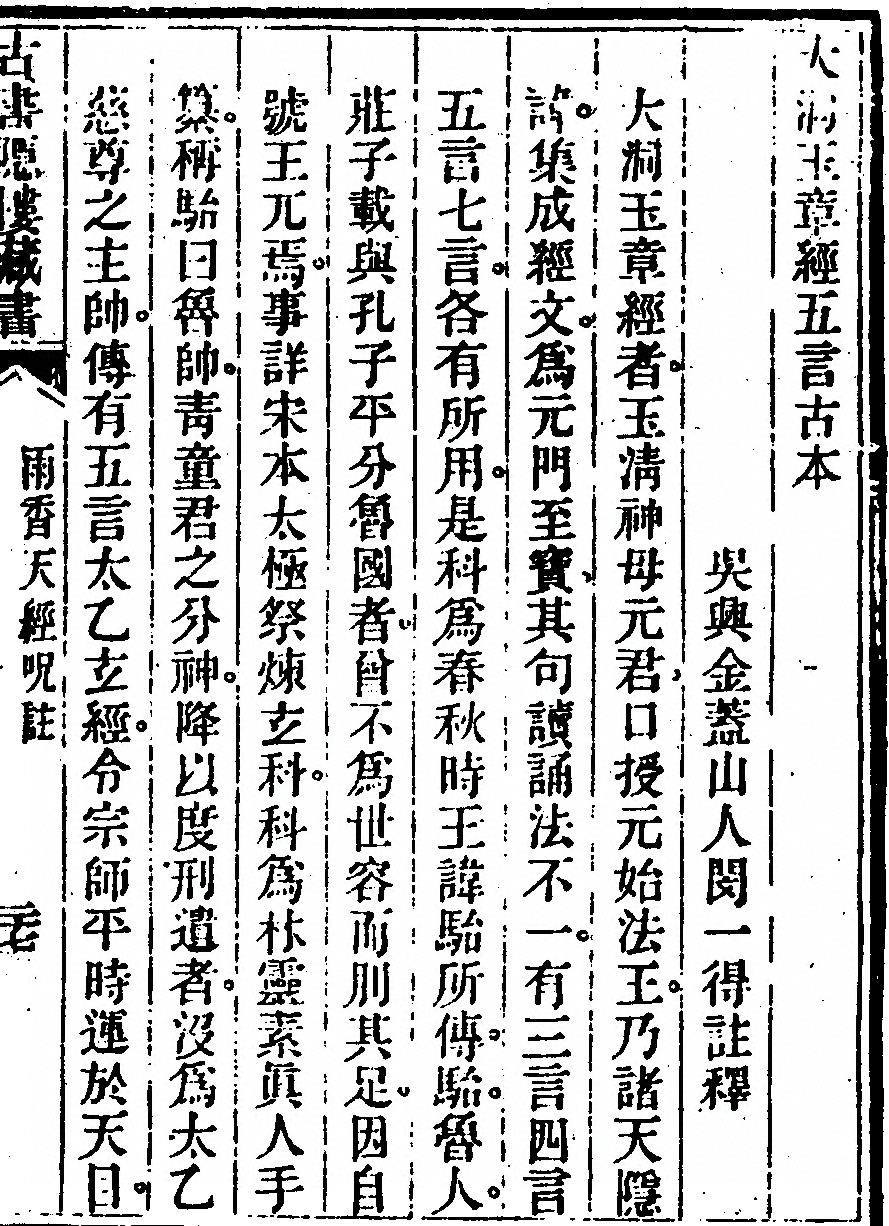 大洞玉章經五言古本
吳興金蓋山人閔一得註釋
大洞玉章經者。玉淸神母元君、口授元始法王。乃諸天隱
諱。集成經文。爲元門至寶、其句讀誦法不一。有三言四言
五言七言。各有所用。是科爲春秋時王諱駘所傳。駘。魯人。
莊子載與孔子平分魯國者、曾不爲世容而刖其足、因自
號王兀焉。事詳宋本太極祭煉玄科。科爲林靈素眞人手
纂。稱駘曰魯帥。靑童君之分神。降以度刑遺者。沒爲太乙
慈尊之主帥。傳有五言太乙玄經。令宗師平時運於天目。
古書隱樓藏書
雨香天經呪註